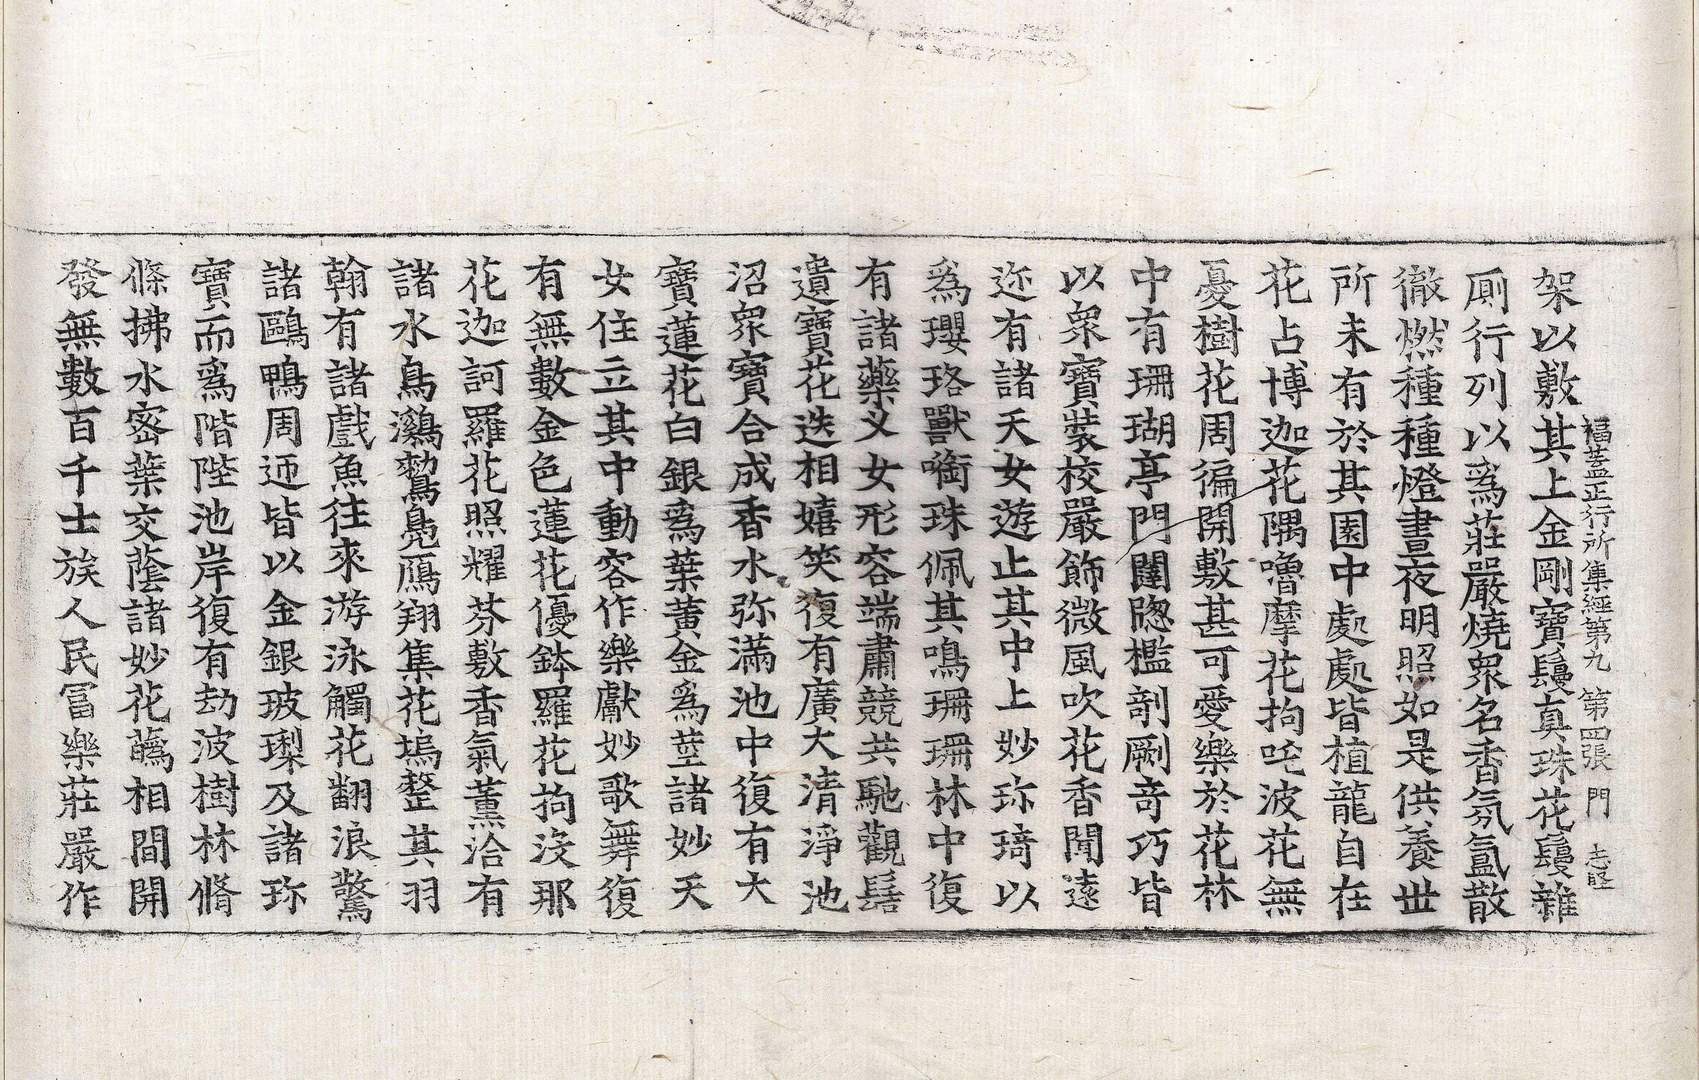 福蓋正行所集經第九　第四張　門　志堅
架以敷其上金剛寶鬘真珠花鬘雜
廁行列以爲莊嚴燒衆名香氛氳散
徹燃種種燈晝夜明照如是供養世
所未有於其園中處處皆植龍自在
花占博迦花隅嚕摩花拘吒波花無
憂樹花周徧開敷甚可愛樂於花林
中有珊瑚亭門闥牕檻剞劂竒巧皆
以衆寶裝校嚴飾微風吹花香聞遠
迩有諸天女遊止其中上妙珎琦以
爲瓔珞獸㗸珠佩其鳴珊珊林中復
有諸藥义女形容端肅競共馳觀髻
遺寶花迭相嬉笑復有廣大清淨池
沼衆寶合成香水弥滿池中復有大
寶蓮花白銀爲葉黄金爲莖諸妙天
女住立其中動容作樂獻妙歌舞復
有無數金色蓮花優鉢羅花拘沒那
花迦訶羅花照耀芬敷香氣薰洽有
諸水鳥鸂鶩鳧鴈翔集花塢整其羽
翰有諸戲魚往來游泳觸花翻浪驚
諸鷗鴨周迊皆以金銀玻瓈及諸珎
寶而爲階陛池岸復有劫波樹林脩
條拂水密葉交蔭諸妙花蘤相間開
發無數百千士族人民冨樂莊嚴作